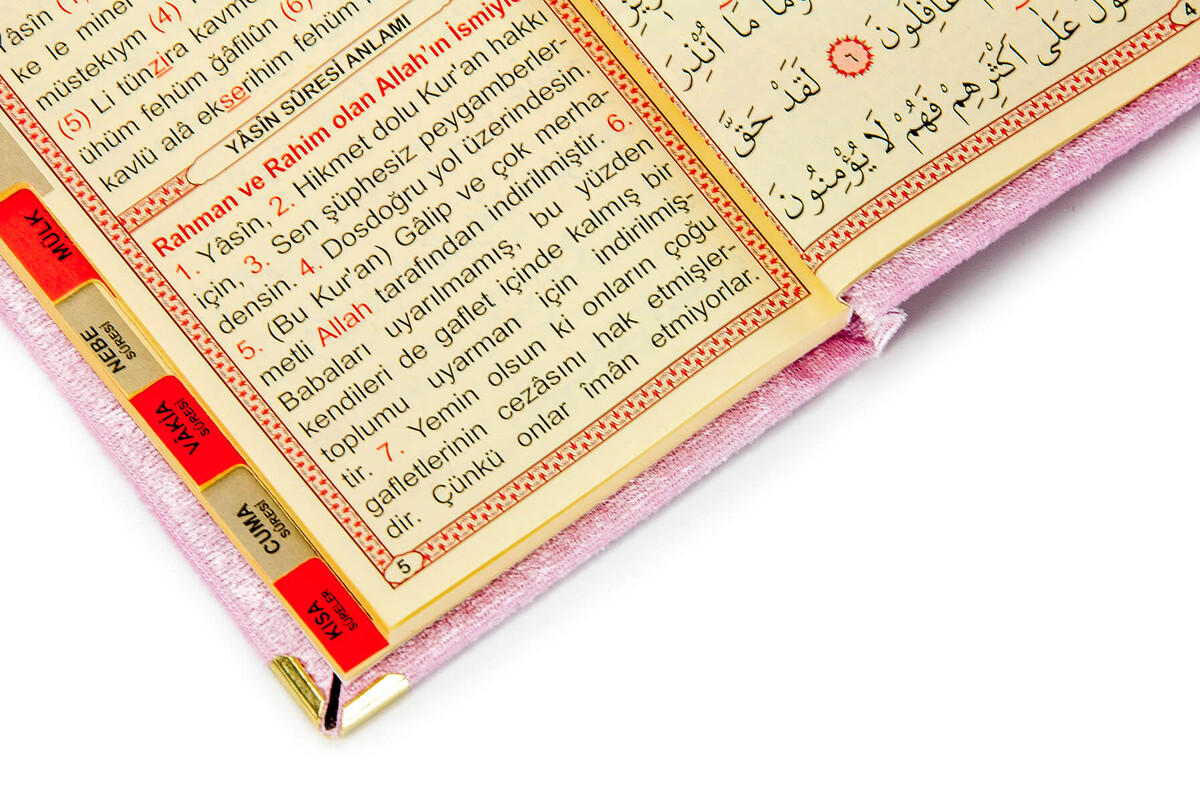 Yâsîn (1)
ke le minel
müstekıym (4)
(5) Li tünzira kavme
ühüm fehüm ğâfilûn (6)
kavlü alâ ekserihim fehüm
YÂSÎN SÛRESİ ANLAMI
Rahman ve Rahim olan Allah'ın İsmiyle
1. Yâsîn, 2. Hikmet dolu Kur'an hakkı
için, 3. Sen şüphesiz peygamberler-
densin. 4. Dosdoğru yol üzerindesin.
5. (Bu Kur'an) Gâlip ve çok merha-
metli Allah tarafından indirilmiştir. 6.
Babaları uyarılmamış, bu yüzden
kendileri de gaflet içinde kalmış bir
toplumu uyarman için indirilmiş-
tir. 7. Yemin olsun ki onların çoğu
gafletlerinin cezâsını hak etmişler-
dir. Çünkü onlar îmân etmiyorlar.
5
MÜLK
NEBE
SÛRESİ
VÂKIA
SÛRESİ
CUMA
SÛRESİ
KISA
SÛRELER
مَا أُنْذِرَ
غَافِلُونَ ٦ لَقَدْ حَقَّ
عَلٰى اَكْثَرِهِمْ فَهُمْ لَا يُؤْمِنُونَ
4